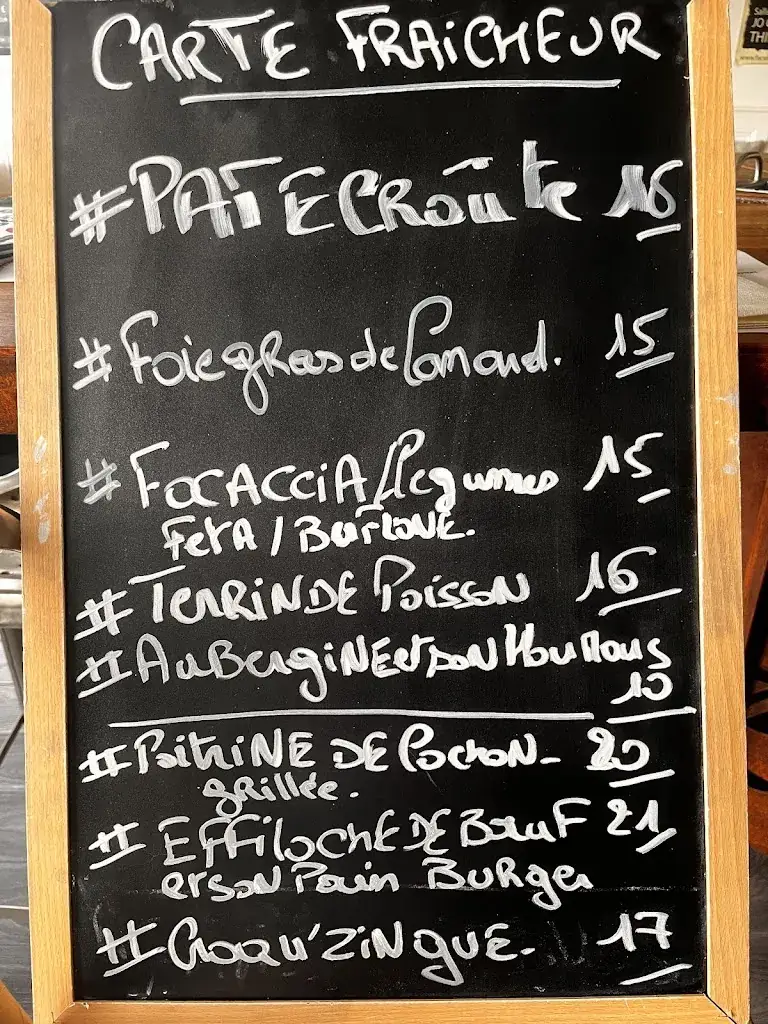 CARTE FRAiCHEUR
#PATE CROûte 16
#Foie gras de Canard. 15
#FOCACCiA/Légumes 15
FetA / BurlONE.
#TerriNDE Poisson 16
#AuBergiNE et son Houmous
10
#PoitriNE DE Cochon- 20
grillée.
#EFFiloché DE BœuF 21
et son Pain Burger
#Croqu'ZiNgue. 17